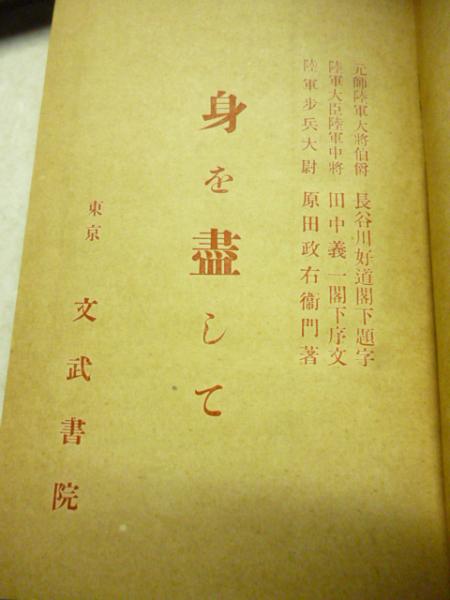 元帥陸軍大將伯爵 長谷川好道閣下題字
陸軍大臣陸軍中將 田中義一閣下序文
陸軍步兵大尉 原田政右衞門著
身を盡して
東京 文武書院